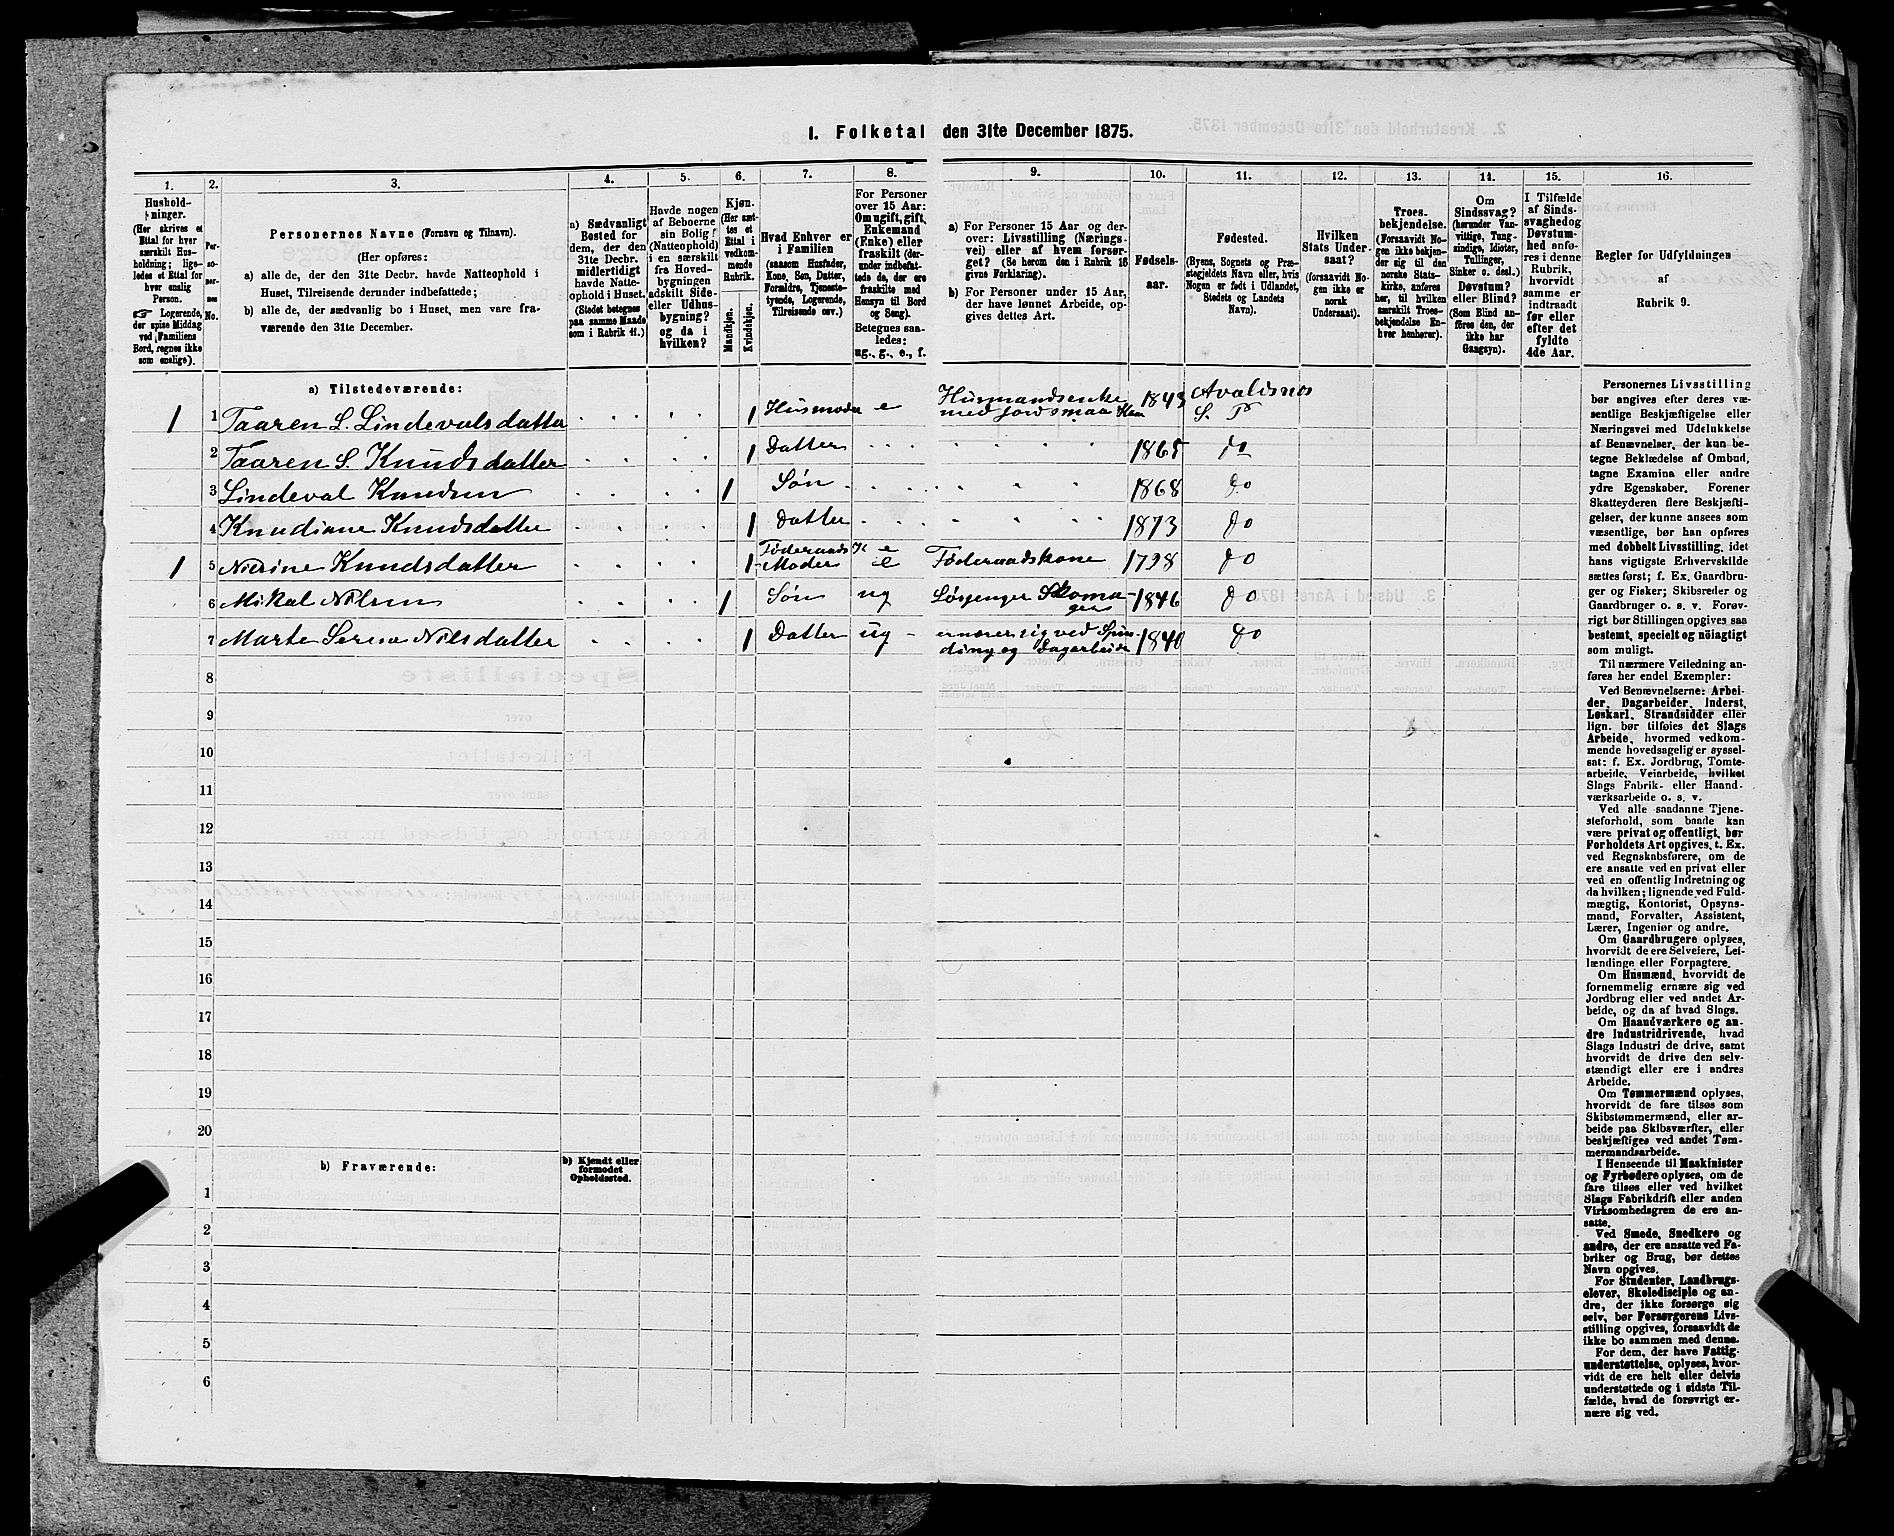 1. Folketal den 31te December 1875.
1.
2.
3.
4.
5.
6.
7.
8.
9.
10.
11.
12.
13.
14.
15.
16.
Hushold-
ninger.
(Her skrives et
Ettal for hver
særskilt Hus-
holdning; lige-
ledes et Ettal for
hver enslig
Person.
☞ Logerende,
der spise Middag
ved Familiens
Bord, regnes ikke
som enslige).
Per-
so-
ner-
nes
No.
Personernes Navne (Fornavn og Tilnavn).
(Her opføres:
a) alle de, der den 31te Decbr. havde Natteophold i
Huset, Tilreisende derunder indbefattede;
b) alle de, der sædvanlig bo i Huset, men vare fra-
værende den 31te December.
a) Sædvanligt
Bosted for
dem, der den
31te Decbr.
midlertidigt
havde Natte-
ophold i Huset.
(Stedet betegnes
paa samme Maade
som i Rubrik 11.)
Havde nogen
af Beboerne
sin Bolig
(Natteophold)
i en særskilt
fra Hoved-
bygningen
adskilt Side-
eller Udhus-
bygning?
og da i
hvilken?
Kjøn.
(Her sæt-
tes et
Ettal i
vedkom-
mende
Rubrik.
Mandkjøn.
Kvindekjøn.
Hvad Enhver er
i Familien
(saasom Husfader,
Kone, Søn, Datter,
Forældre, Tjeneste-
tyende, Logerende,
Tilreisende osv.)
For Personer
over 15 Aar:
Om ugift, gift,
Enkemand
(Enke) eller
fraskilt (der-
under indbefat-
tede de, der ere
fraskilte med
Hensyn til Bord
og Seng).
Betegnes saa-
ledes:
ug., g., e., f.
a) For Personer 15 Aar og der-
over: Livsstilling (Nærings-
vei) eller af hvem forsør-
get? (Se herom den i Rubrik 16
givne Forklaring).
b) For Personer under 15 Aar,
der have lønnet Arbeide, op-
gives dettes Art.
Fødsels-
aar.
Fødested.
(Byens, Sognets og Præ-
stegjeldets Navn eller, hvis
Nogen er født i Udlandet,
Stedets og Landets
Navn).
Hvilken
Stats Under-
saat?
(forsaavidt No-
gen ikke er
norsk
Undersaat).
Troes-
bekjendelse.
(Forsaavidt No-
gen ikke bekjen-
der sig til den
norske Stats-
kirke, anføres
her, til hvilken
særskilt Troes-
bekjendelse En-
hver henhører).
Om
Sindssvag?
(herunder Van-
vittige, Tung-
sindige, Idioter,
Tullinger,
Sinker o. desl.)
Døvstum?
eller Blind?
(Som Blind an-
føres den, der
ikke har
Gangsyn).
I Tilfælde
af Sinds-
svaghed og
Døvstum-
hed anfø-
res i denne
Rubrik,
hvorvidt
samme er
indtraadt
før eller
efter det
fyldte
4de Aar.
Regler for Udfyldningen
af
Rubrik 9.
a) Tilstedeværende:
1 1 Taaren L. Lindevalsdatter 1 Husmoder e Husmandsenke med Jord 1843 Avaldsnes S. P
2 Taaren S. Knudsdatter 1 Datter 1865 do
3 Lindeval Knudsen 1 Søn 1868 do
4 Knudiane Knudsdatter 1 Datter 1873 do
1 5 Nilsine Knudsdatter 1 Føderaads K Moder e Føderaadskone 1798 do
6 Mikal Nilsen 1 Søn ug Løsgjenger Skomager 1846 do
7 Marte Serine Nilsdatter 1 Datter ug ernærer sig ved Spinding og Dagarbeide 1840 do
8
9
10
11
12
13
14
15
16
17
18
19
20
b) Fraværende:
b) Kjendt eller
formodet
Opholdssted.
1
2
3
4
5
6
Personernes Livsstilling
bør angives efter deres væ-
sentlige Beskjæftigelse eller
Næringsvei med Udelukkelse
af Benævnelser, der kun be-
tegne Beklædelse af Ombud,
tagne Examina eller andre
ydre Egenskaber. Forener
Skatteyderen flere Beskjæfti-
gelser, der kunne ansees som
væsentlige, bør han opføres
med dobbelt Livsstilling, idet
hans vigtigste Erhvervskilde
sættes først; f. Ex. Gaardbru-
ger og Fisker; Skibsreder og
Gaardbruger o. s. v. Forøv-
rigt bør Stillingen opgives saa
bestemt, specielt og nøiagtigt
som muligt.
Til nærmere Veiledning an-
føres her endel Exempler:
Ved Benævnelserne: Arbei-
der, Dagarbeider, Inderst,
Løskarl, Strandsidder eller
lign. bør tilføies det Slags
Arbeide, hvormed vedkom-
mende hovedsagelig er syssel-
sat: f. Ex. Jordbrug, Tomte-
arbeide, Veiarbeide, hvilket
Slags Fabrik- eller Haand-
værksarbeide o. s. v.
Ved alle saadanne Tjene-
steforhold, som baade kan
være privat og offentligt, bør
Forholdets Art opgives, t. Ex.
ved Regnskabsførere, om de
ere ansatte ved en privat eller
ved en offentlig Indretning og
da hvilken; lignende ved Fuld-
mægtig, Kontorist, Opsyns-
mand, Forvalter, Assistent,
Lærer, Ingeniør og andre.
Om Gaardbrugere oplyses,
hvorvidt de ere Selveiere, Lei-
lændinge eller Forpagtere.
Om Husmænd, hvorvidt de
fornemmelig ernære sig ved
Jordbrug eller ved andet Ar-
beide, og da af hvad Slags.
Om Haandværkere og an-
dre Industridrivende, hvad
Slags Industri de drive, samt
hvorvidt de drive den selv-
stændigt eller ere i andres
Arbeide.
Om Tømmermænd oplyses,
hvorvidt de fare tilsøs som
Skibstømmermænd, eller ar-
beide paa Skibsværfter, eller
beskjæftiges ved andet Tøm-
mermandsarbeide.
I Henseende til Maskinister
og Fyrbødere oplyses, om de
fare tilsøs eller ved hvilket
Slags Fabrikdrift eller anden
Virksomhedsgren de ere an-
satte.
Ved Smede, Snedkere og
andre, der ere ansatte ved Fa-
briker og Brug, bør dettes
Navn opgives.
For Studenter, Landbrugs-
elever, Skoledisciple og an-
dre, der ikke forsørge sig
selv, bør Forsørgerens Livs-
stilling opgives, forsaavidt de
ikke bo sammen med denne.
For dem, der have Fattig-
understøttelse, oplyses, hvor-
vidt de ere helt eller delvis
understøttede og i sidste Til-
fælde, hvad de forøvrigt er-
nære sig ved.